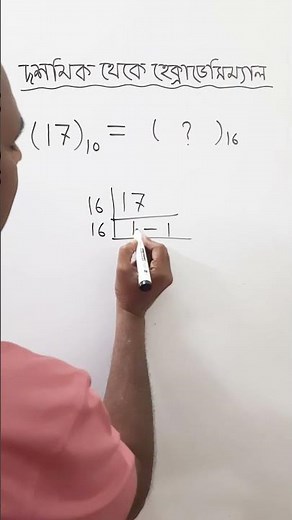 দশমিক থেকে হেক্সাডেসিম্যাল
(17)₁₀ = ( ? )₁₆
16 | 17
16 | 1 – 1